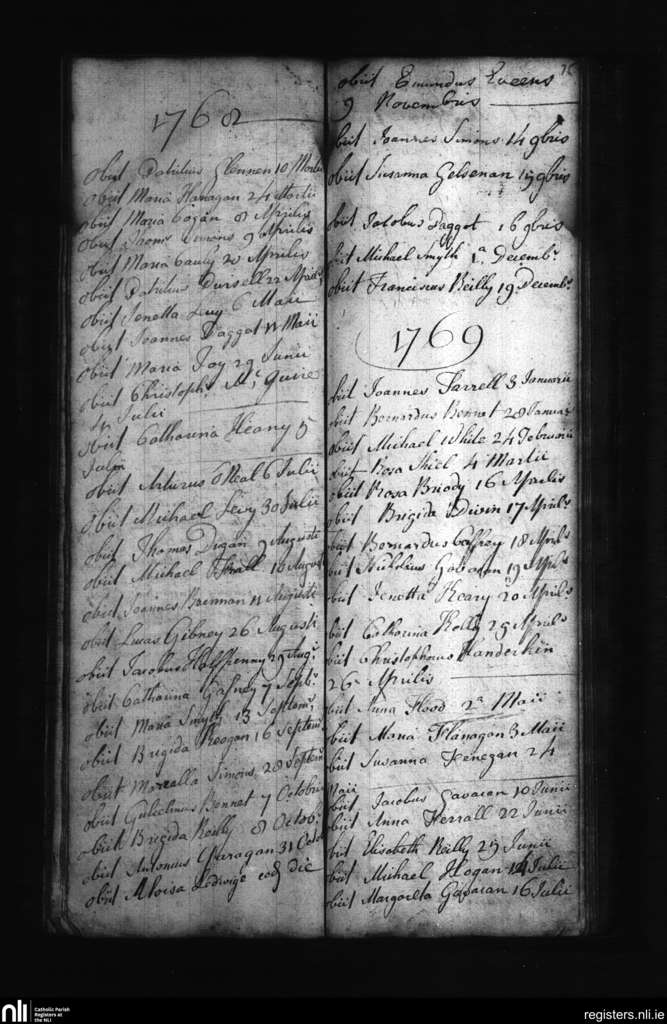 1768
obiit Patritius Glennen 10 Martii
obiit Maria Flanagan 24 Martii
obiit Maria Cogan 8 Aprilis
obiit Simons 9 Aprilis
obiit Maria Cauly 20 Aprilis
obiit Patritius Dursell 22 Aprilis
obiit Jenetta Levy 6 Maii
obiit Joannes Daggot 11 Maii
obiit Maria Foy 29 Junii
obiit Christophs Mc Guire
4 Julii
obiit Catharina Heany 5
Julii
obiit Arturus O Neal 6 Julii
obiit Michael Levy 30 Julii
obiit Thomas Digan 9 Augusti
obiit Michael 10 Augusti
obiit Joannes Brennan 11 Augusti
obiit Lucas Gibney 26 Augusti
obiit Jacobus Halfpenny 29 Augt
obiit Catharina Gafney 7 Septr
obiit Maria Smyth 13 Septemr
obiit Brigida Keogan 16 Septem
obiit Marcella Simons 28 Septem
obiit Gulielmus Bennet 7 Octobris
obiit Brigida Reilly 8 Octob
obiit Antonius Garagan 31 Octob
obiit Aloisa Ledwige eod die
76
obiit Emundus Lueens
9 Novembris
obiit Joannes Simons 14 9bris
obiit Susanna Gelsenan 15 9bris
obiit Jacobus Daggot 16 9bris
obiit Michael Smyth 1a Decembs
obiit Franciscus Reilly 19 Decembs
1769
obiit Joannes Farrell 3 Januarii
obiit Bernardus Bennet 28 Januar
obiit Michael White 24 Februarii
obiit Rosa Shiel 4 Martii
obiit Rosa Briody 16 Aprilis
obiit Brigida Divin 17 Aprils
obiit Bernardus Caffrey 18 Aprils
obiit Gavacan 19 Aprils
obiit Jenetta Keary 20 Aprils
obiit Catharina Kelly 25 Aprils
obiit Christophorus Handerkin
26a Aprilis
obiit Anna Flood 2a Maii
obiit Maria Flanagan 3 Maii
obiit Susanna Fenegan 24
Maii
obiit Jacobus Gavacan 10 Junii
obiit Anna Ferrall 22 Junii
obiit Elisabeth Reilly 29 Junii
obiit Michael Hogan 14 Julii
obiit Margareta Gavacan 16 Julii
nli
Catholic Parish
Registers at
the NLI
registers.nli.ie